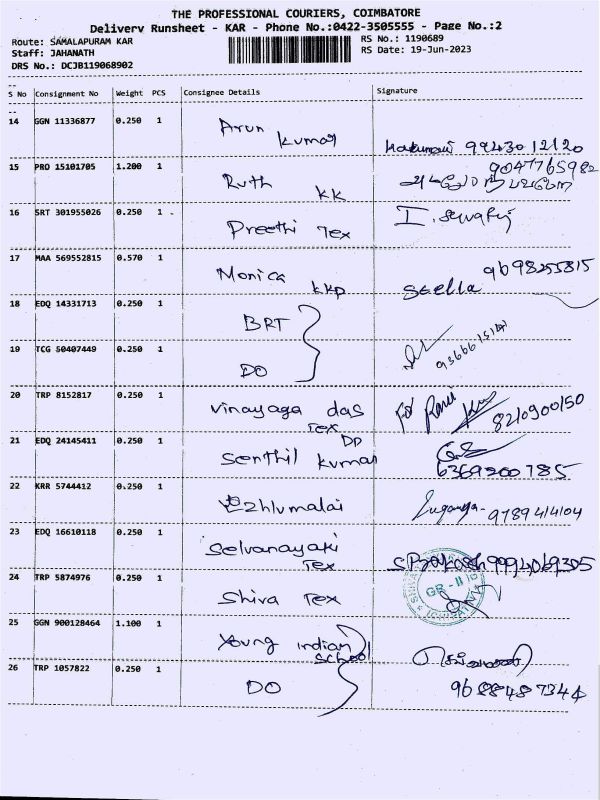 THE PROFESSIONAL COURIERS, COIMBATORE
Delivery Runsheet - KAR - Phone No.:0422-3505555 - Page No.:2
Route: SAMALAPURAM KAR
RS No.: 1190689
Staff: JAHANATH
RS Date: 19-Jun-2023
DRS No.: DCJB119068902
S No Consignment No Weight PCS Consignee Details Signature
14 GGN 11336877 0.250 1 Arun Kumar 9943012120
15 PRO 15101705 1.200 1 Ruth KK 9047765982
16 SRT 301955026 0.250 1 Preethi Tex I.
17 MAA 569552815 0.570 1 Monica KKP Stella 9698255815
18 EDQ 14331713 0.250 1 BRT
19 TCG 50407449 0.250 1 DO
20 TRP 8152817 0.250 1 Vinayaga das Tex 8210900150
21 EDQ 24145411 0.250 1 Senthil Kumar DP 6369200785
22 KRR 5744412 0.250 1 Ezhlumalai 9789414104
23 EDQ 16610118 0.250 1 Selvanayaki Tex S Prakash 9994069305
24 TRP 5874976 0.250 1 Shiva Tex GR-II
25 GGN 900128464 1.100 1 Young indian School
26 TRP 1057822 0.250 1 DO 9688487344